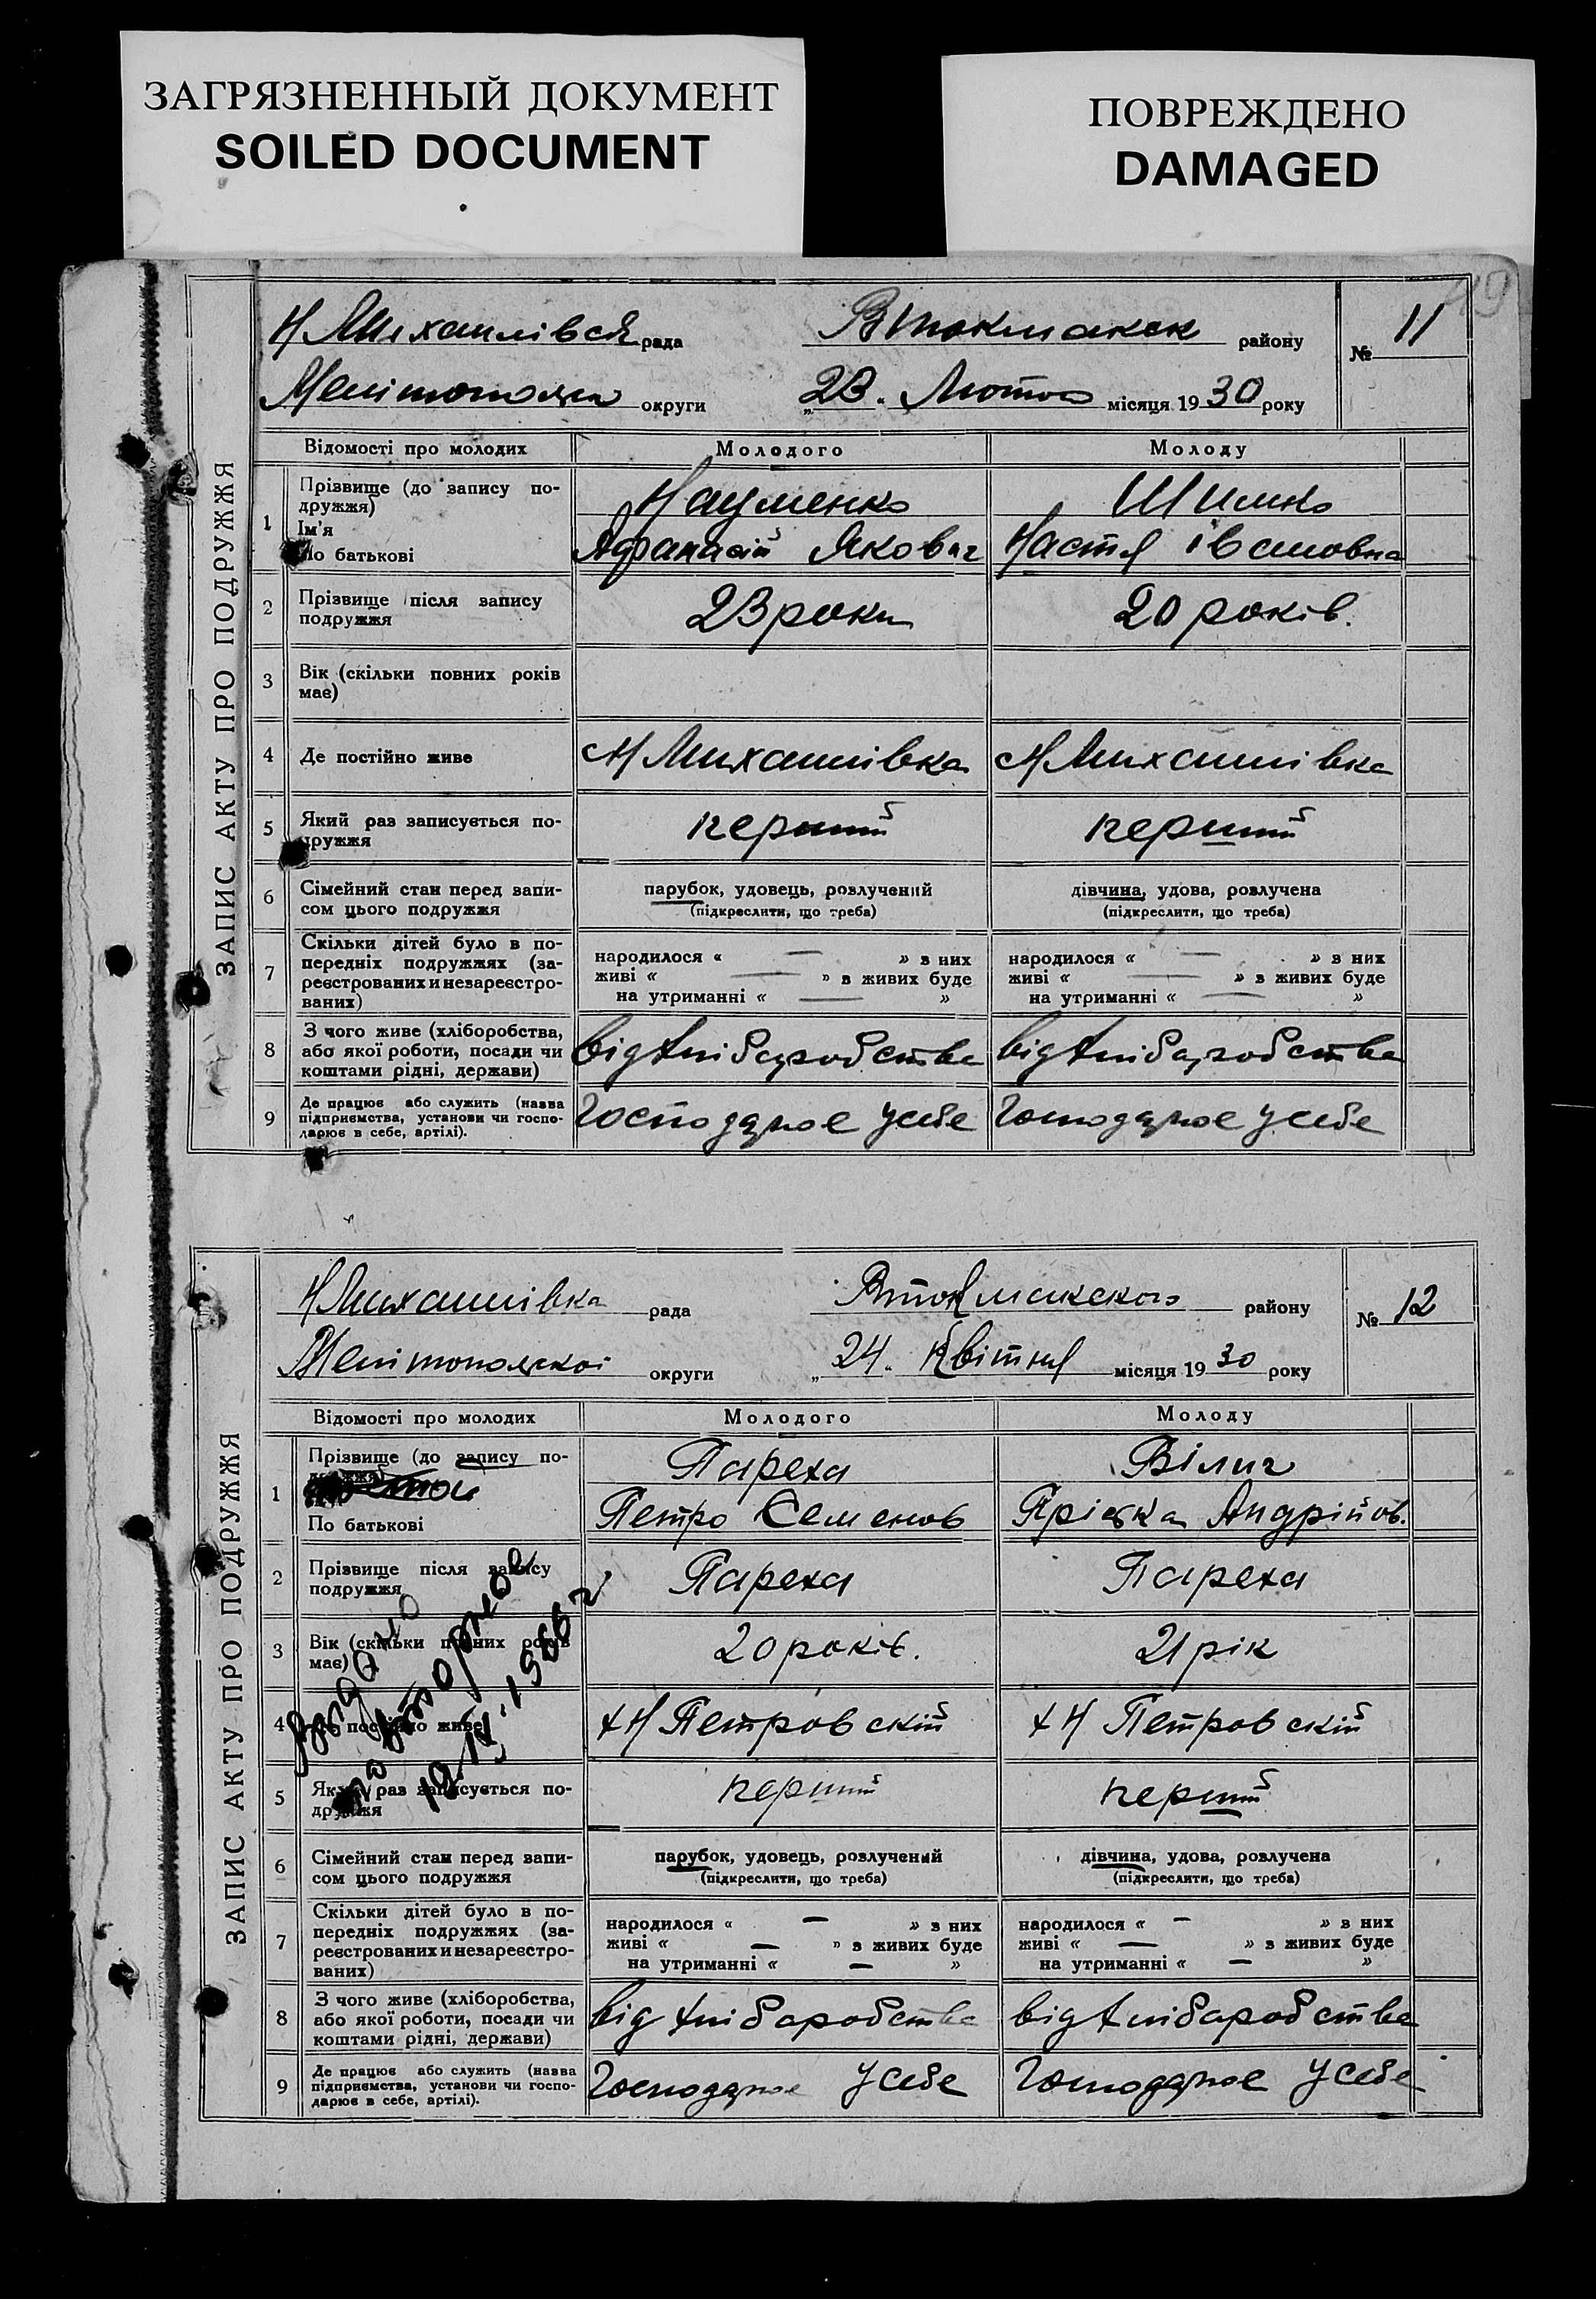 ЗАГРЯЗНЕННЫЙ ДОКУМЕНТ
SOILED DOCUMENT
ПОВРЕЖДЕНО
DAMAGED
ЗАПИС АКТУ ПРО ПОДРУЖЖЯ
Н Михайлівсь рада Втокмакск району № 11
округи „23" Лютого місяця 1930 року
Відомості про молодих Молодого Молоду
1 Прізвище (до запису по-
дружжя) Науменко
Ім'я
По батькові Афанасій Якович Настя Івановна
2 Прізвище після запису
подружжя 23 роки 20 років.
3 Вік (скільки повних років
має)
4 Де постійно живе Н Михайлівка Н Михайлівка
5 Який раз записується по-
дружжя перший перший
6 Сімейний стан перед запи-
сом цього подружжя
парубок, удовець, розлучений дівчина, удова, розлучена
(підкреслити, що треба) (підкреслити, що треба)
7 Скільки дітей було в по-
передніх подружжях (за-
реєстрованих и незареєстро-
ваних)
народилося « — » з них народилося « — » з них
живі « — » з живих буде живі « — » з живих буде
на утриманні « — » на утриманні « — »
8 З чого живе (хліборобства,
або якої роботи, посади чи
коштами рідні, держави)
від хлібаробства від хлібаробства
9 Де працює або служить (назва
підприємства, установи чи госпо-
дарює в себе, артілі).
Господарює у себе Господарює у себе
ЗАПИС АКТУ ПРО ПОДРУЖЖЯ
Н Михайлівка рада Втокмакского району № 12
Мелітопольскоі округи „24" Квітня місяця 1930 року
Відомості про молодих Молодого Молоду
1 Прізвище (до запису по-
дружжя) Пареха Вілич
По батькові Петро Семенов Андрійов.
2 Прізвище після запису
подружжя Пареха Пареха
3 Вік (скільки повних років
має) 20 років. 21 рік
4 Де постійно живе х Н Петровский х Н Петровский
5 Який раз записується по-
дружжя перший перший
6 Сімейний стан перед запи-
сом цього подружжя
парубок, удовець, розлучений дівчина, удова, розлучена
(підкреслити, що треба) (підкреслити, що треба)
7 Скільки дітей було в по-
передніх подружжях (за-
реєстрованих и незареєстро-
ваних)
народилося « — » з них народилося « — » з них
живі « — » з живих буде живі « — » з живих буде
на утриманні « — » на утриманні « — »
8 З чого живе (хліборобства,
або якої роботи, посади чи
коштами рідні, держави)
від хлібаробства від хлібаробства
9 Де працює або служить (назва
підприємства, установи чи госпо-
дарює в себе, артілі).
Господарює у себе Господарює у себе